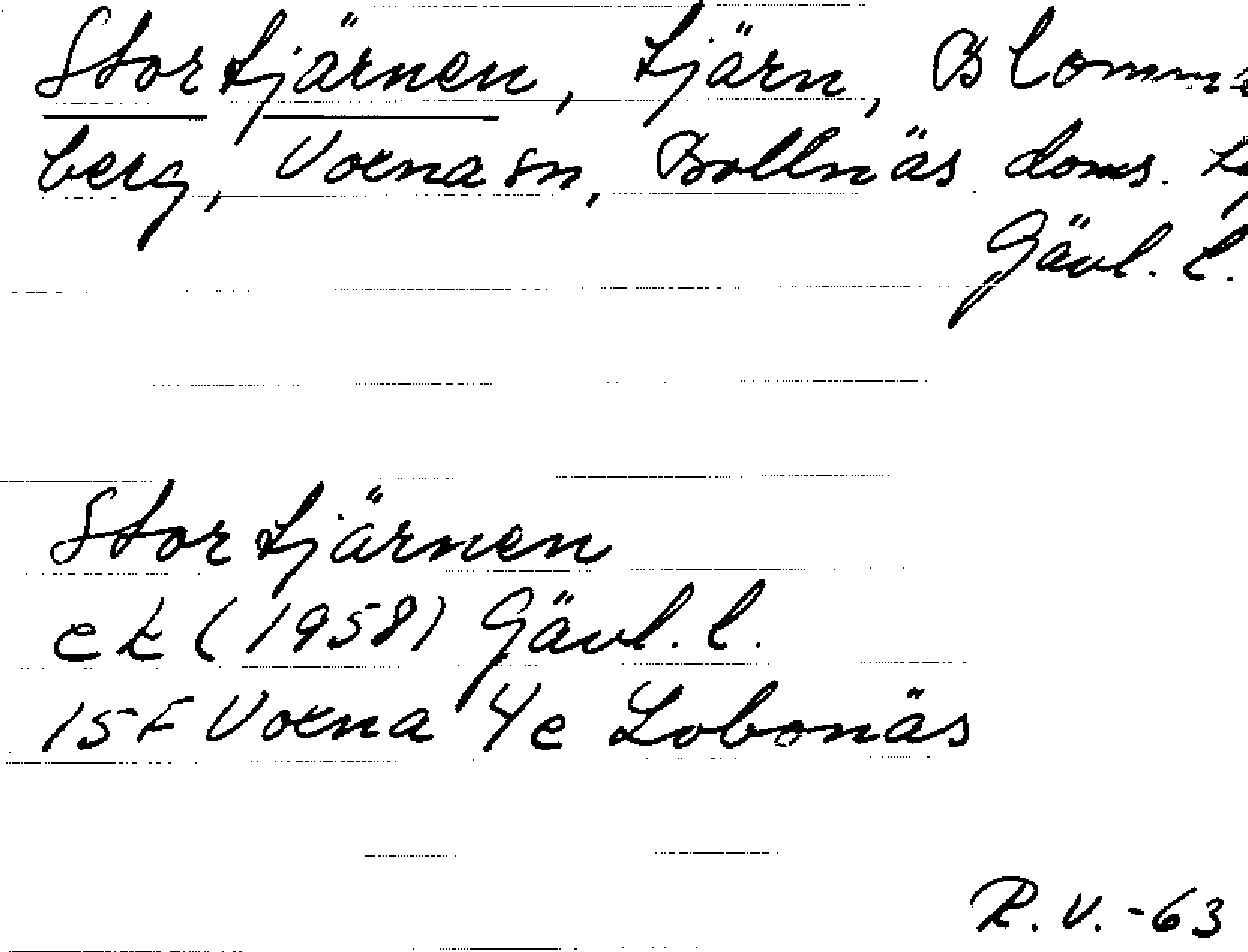 Stortjärnen, tjärn, Blomma
berg, Voxna sn, Bollnäs doms.
Gävl. l.
Stortjärnen
ek (1958) Gävl. l.
15F Voxna 4e Lobonäs
R.V.-63